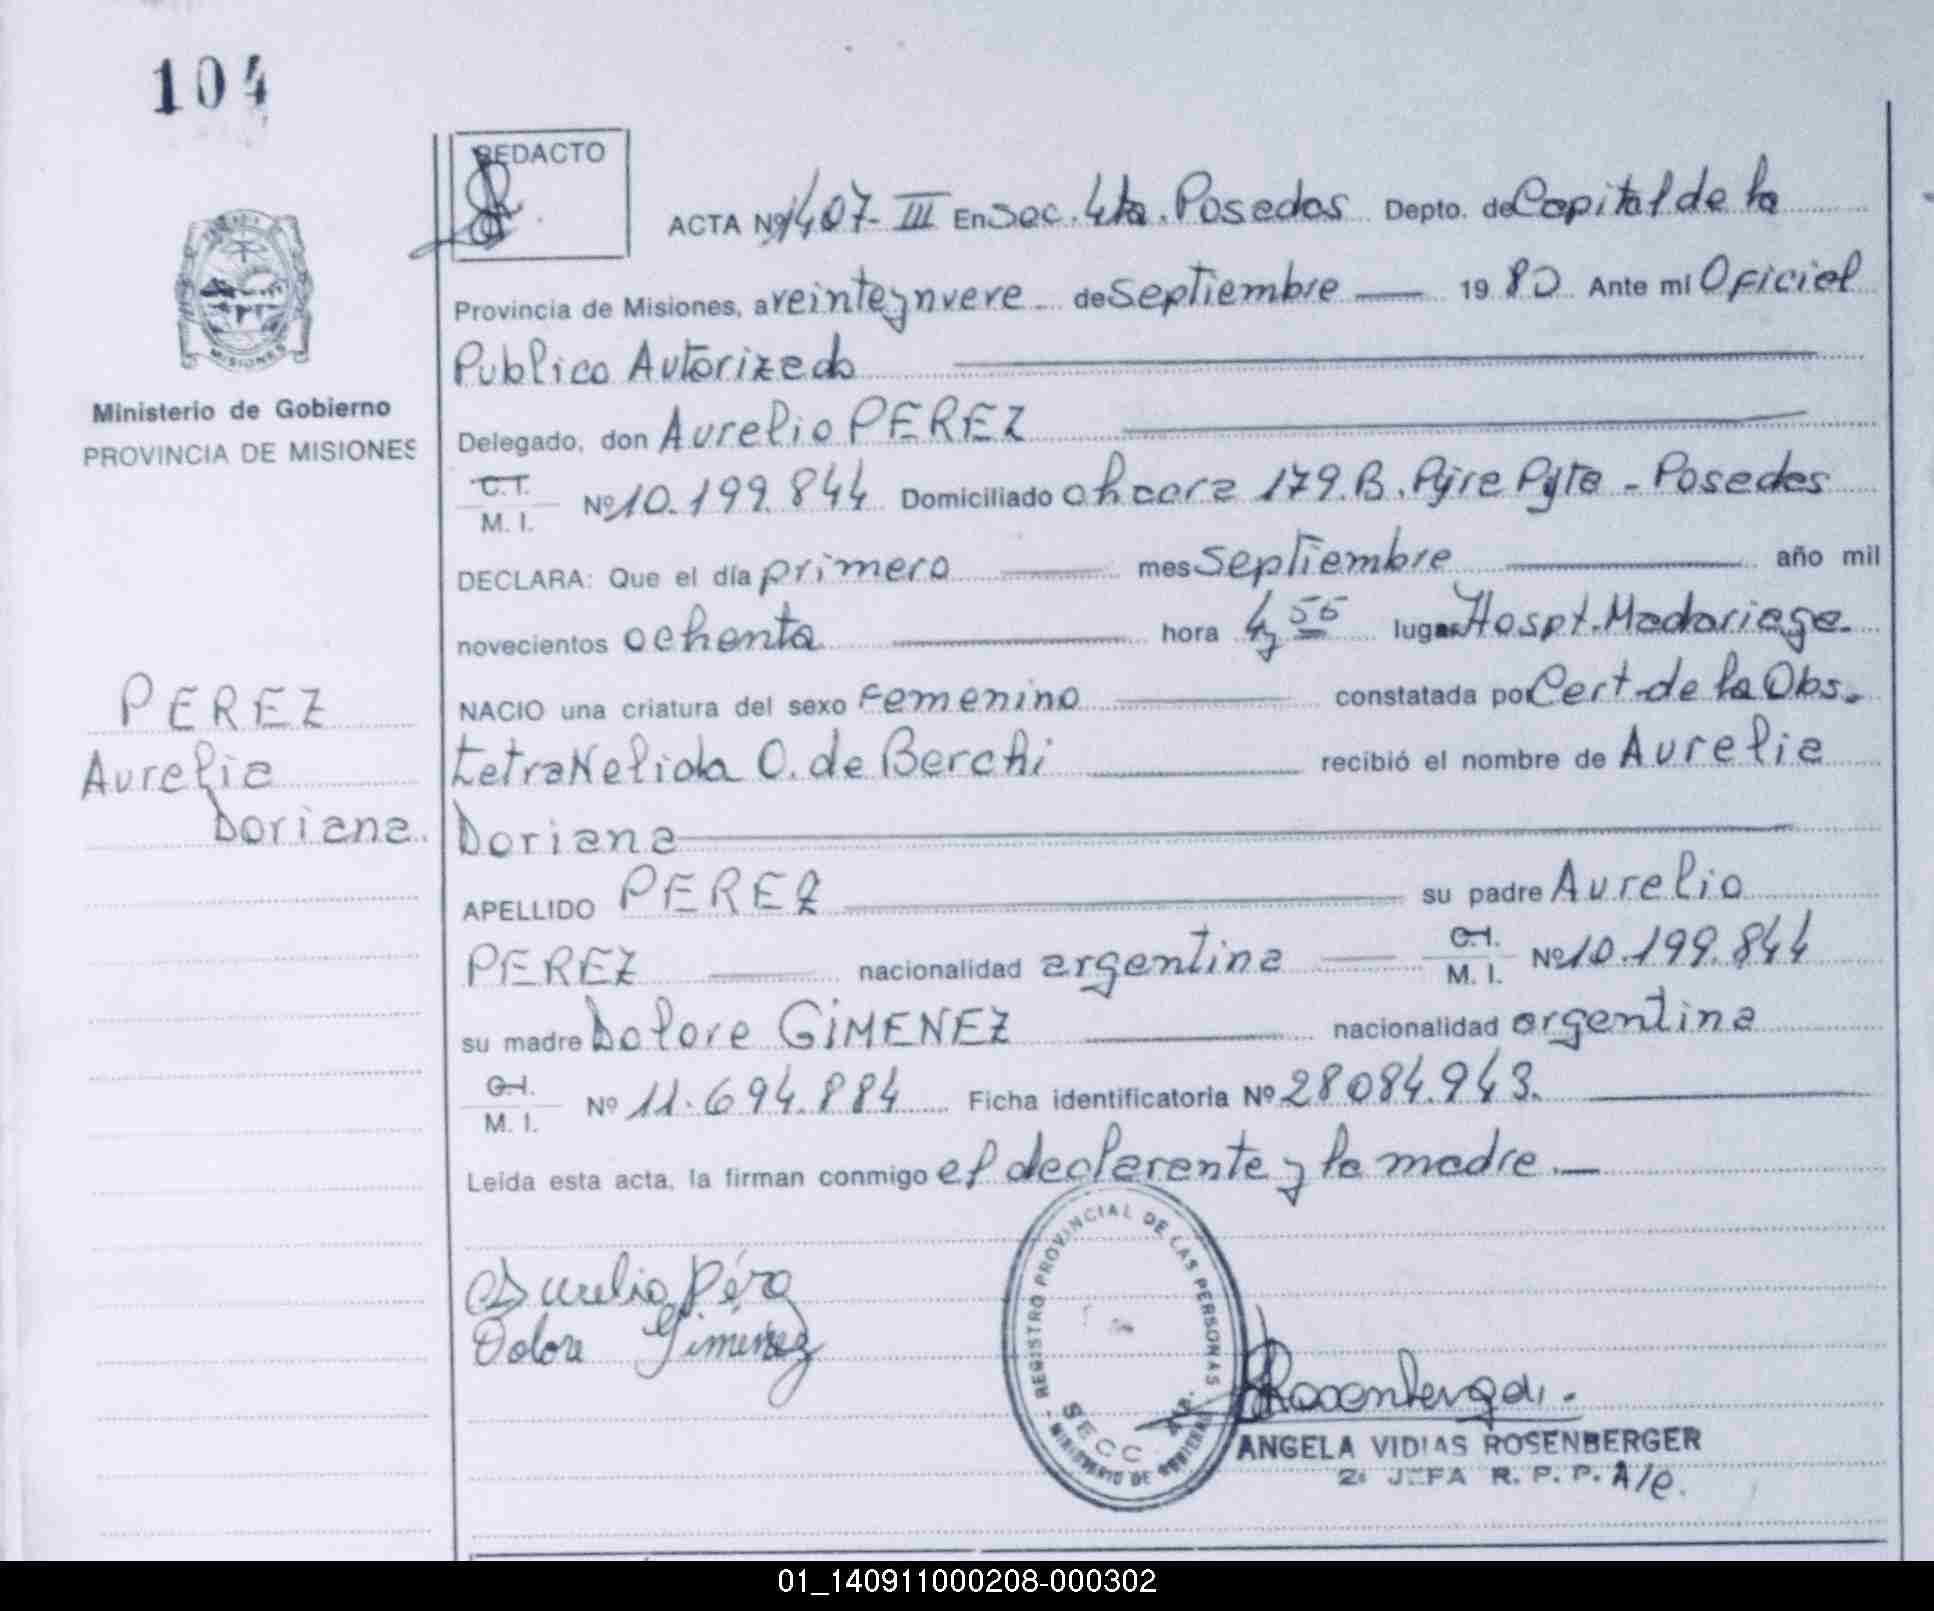 104
REDACTO
ACTA Nº 1407-III En Sec. 4ta. Posadas Depto. de Capital de la
Provincia de Misiones, a veinteynueve de Septiembre 1980 Ante mi Oficial
Publico Autorizado
Delegado, don Aurelio PEREZ
C.I.
M. I. Nº 10.199.844 Domiciliado chacra 179.B. Pyre Pyta - Posadas
DECLARA: Que el día primero mes Septiembre año mil
novecientos ochenta hora 4,55 lugar Hospt. Madariaga.
NACIO una criatura del sexo Femenino constatada por Cert. de la Obs.
tetra Nelida O. de Berchi recibió el nombre de Aurelia
Doriana
APELLIDO PEREZ su padre Aurelio
PEREZ nacionalidad argentina C.I. M. I. Nº 10.199.844
su madre Dolore GIMENEZ nacionalidad argentina
C.I.
M. I. Nº 11.694.884 Ficha identificatoria Nº 28084.943.
Leída esta acta, la firman conmigo el declarante y la madre.
Ministerio de Gobierno
PROVINCIA DE MISIONES
MISIONES
PEREZ
Aurelia
Doriana.
Aurelio Pérez
Dolore Gimenez
REGISTRO PROVINCIAL DE LAS PERSONAS
SECC. 4ta.
MINISTERIO DE GOBIERNO
ANGELA VIDIAS ROSENBERGER
2ª JEFA R. P. P. A/c.
01_140911000208-000302